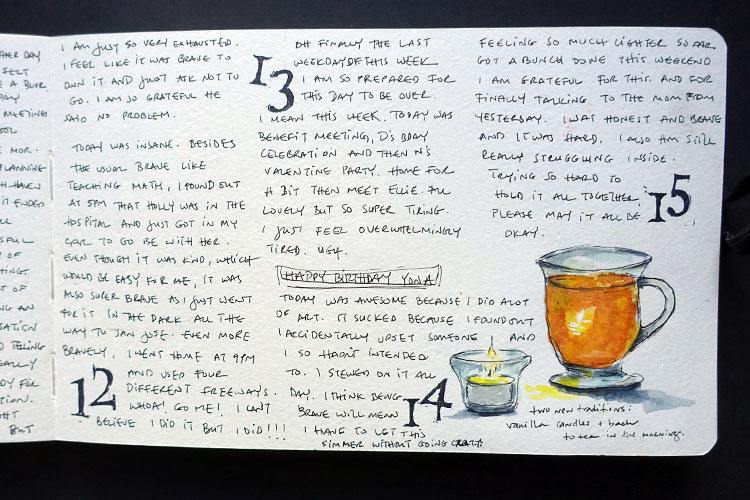 HER DAY
FELT
E A BUR
DAY
MEETING
OOL
E MOR-
PLANNING
H HAVEN
IT ENDED
LL
SSFUL
Y OF
HINGS
RT OF
NG AN
SATION
D TELLING
EALLY
DY FOR
TION.
GHT
BUT
I AM JUST SO VERY EXHAUSTED.
I FEEL LIKE IT WAS BRAVE TO
OWN IT AND JUST ASK NOT TO
GO. I AM SO GRATEFUL HE
SAID NO PROBLEM.
TODAY WAS INSANE. BESIDES
THE USUAL BRAVE LIKE
TEACHING MATH, I FOUND OUT
AT 5PM THAT HOLLY WAS IN THE
HOSPITAL AND JUST GOT IN MY
CAR TO GO BE WITH HER.
EVEN THOUGH IT WAS KIND, WHICH
WOULD BE EASY FOR ME, IT WAS
ALSO SUPER BRAVE AS I JUST WENT
FOR IT IN THE DARK ALL THE
WAY TO SAN JOSE. EVEN MORE
BRAVELY, I WENT HOME AT 9PM
12 AND USED FOUR
DIFFERENT FREEWAYS.
WHOA! GO ME! I CAN'T
BELIEVE I DID IT BUT I DID!!!
13 OH FINALLY THE LAST
WEEKDAY OF THIS WEEK.
I AM SO PREPARED FOR
THIS DAY TO BE OVER.
I MEAN THIS WEEK. TODAY WAS
BENEFIT MEETING, D'S BDAY
CELEBRATION AND THEN N'S
VALENTINE PARTY. HOME FOR
A BIT THEN MEET ELLIE. ALL
LOVELY BUT SO SUPER TIRING.
I JUST FEEL OVERWHELMINGLY
TIRED. UGH.
HAPPY BIRTHDAY YONA
TODAY WAS AWESOME BECAUSE I DID A LOT
OF ART. IT SUCKED BECAUSE I FOUND OUT
I ACCIDENTALLY UPSET SOMEONE AND
I SO HADN'T INTENDED
TO. I STEWED ON IT ALL
DAY. I THINK BEING
BRAVE WILL MEAN 14
I HAVE TO LET THIS
SIMMER WITHOUT GOING CRAZY.
FEELING SO MUCH LIGHTER SO FAR.
GOT A BUNCH DONE THIS WEEKEND
I AM GRATEFUL FOR THIS. AND FOR
FINALLY TALKING TO THE MOM FROM
YESTERDAY. I WAS HONEST AND BRAVE
AND IT WAS HARD. I ALSO AM STILL
REALLY STRUGGLING INSIDE.
TRYING SO HARD TO
HOLD IT ALL TOGETHER.
PLEASE MAY IT ALL BE 15
OKAY.
two new traditions:
vanilla candles + back
to tea in the mornings.